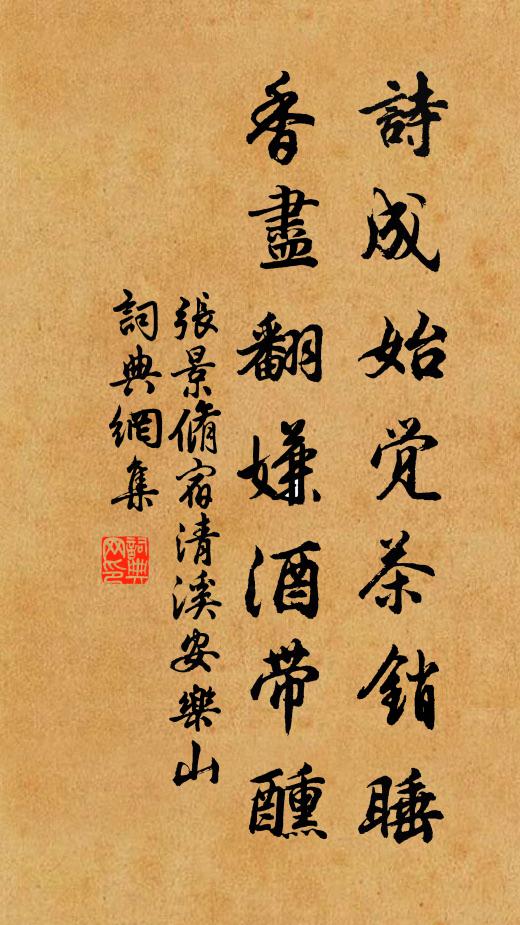 詩成始觉茶銷睡
香盡翻嫌酒帶醺
張景脩宿清溪安樂山
詞典網集
詞典
网印